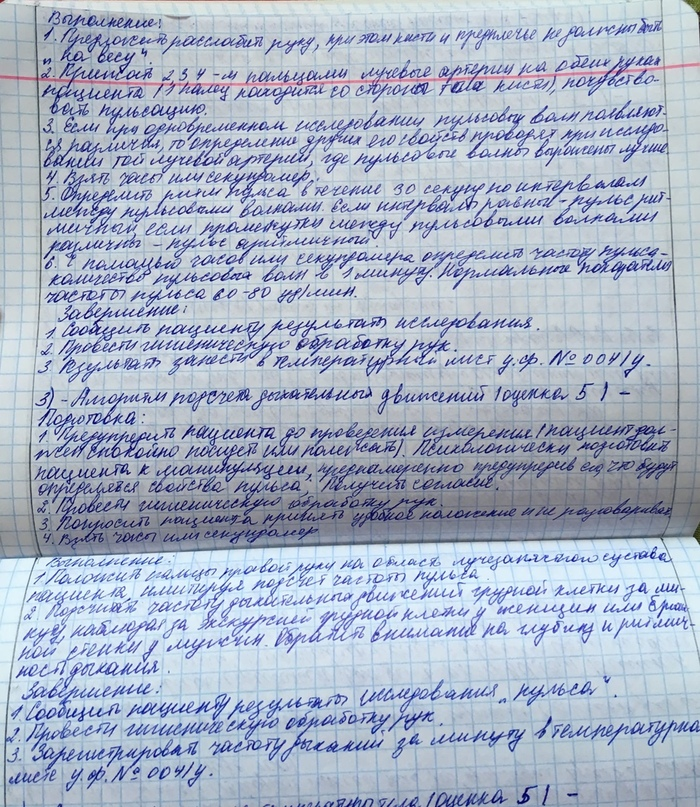 Выполнение:
1. Предложить расслабить руку, при этом кисть и предплечье не должны быть
„на весу“.
2. Прижать 2 3 4-м пальцами лучевые артерии на обеих руках
пациента (1 палец находится со стороны тыла кисти), почувство-
вать пульсацию.
3. Если при одновременном исследовании пульсовых волн появляют-
ся различия, то определение других его свойств проводят при исследо-
вании той лучевой артерии, где пульсовые волны выражены лучше
4. Взять часы или секундомер.
5. Определить ритм пульса в течение 30 секунд по интервалам
между пульсовыми волнами. Если интервалы равны - пульс рит-
мичный, если промежутки между пульсовыми волнами
различны - пульс аритмичный
6. С помощью часов или секундомера определить частоту пульса-
количество пульсовых волн в 1 минуту. Нормальные показатели
частоты пульса 60-80 уд/мин.
Завершение:
1. Сообщить пациенту результаты исследования.
2. Провести гигиеническую обработку рук.
3. Результаты занести в температурный лист у.ф. № 004/у.
3) - Алгоритм подсчета дыхательных движений (оценка 5) -
Подготовка:
1. Предупредить пациента до проведения измерения (пациент дол-
жен спокойно посидеть или полежать). Психологически подготовить
пациента к манипуляции, преднамеренно предупредив его, что будут
определяться свойства пульса. Получить согласие.
2. Провести гигиеническую обработку рук.
3. Попросить пациента принять удобное положение и не разговаривать
4. Взять часы или секундомер
Выполнение:
1 Положить пальцы правой руки на область лучезапястного сустава
пациента, имитируя подсчет частоты пульса.
2. Подсчитать частоту дыхательных движений грудной клетки за ми-
нуту, наблюдая за экскурсией грудной клетки у женщин или брюш-
ной стенки у мужчин. Обратить внимание на глубину и ритмич-
ность дыхания.
Завершение:
1 Сообщить пациенту результаты исследования „пульса“.
2. Провести гигиеническую обработку рук.
3. Зарегистрировать частоту дыханий за минуту в температурном
листе у.ф. № 004/у.
(оценка 5) -